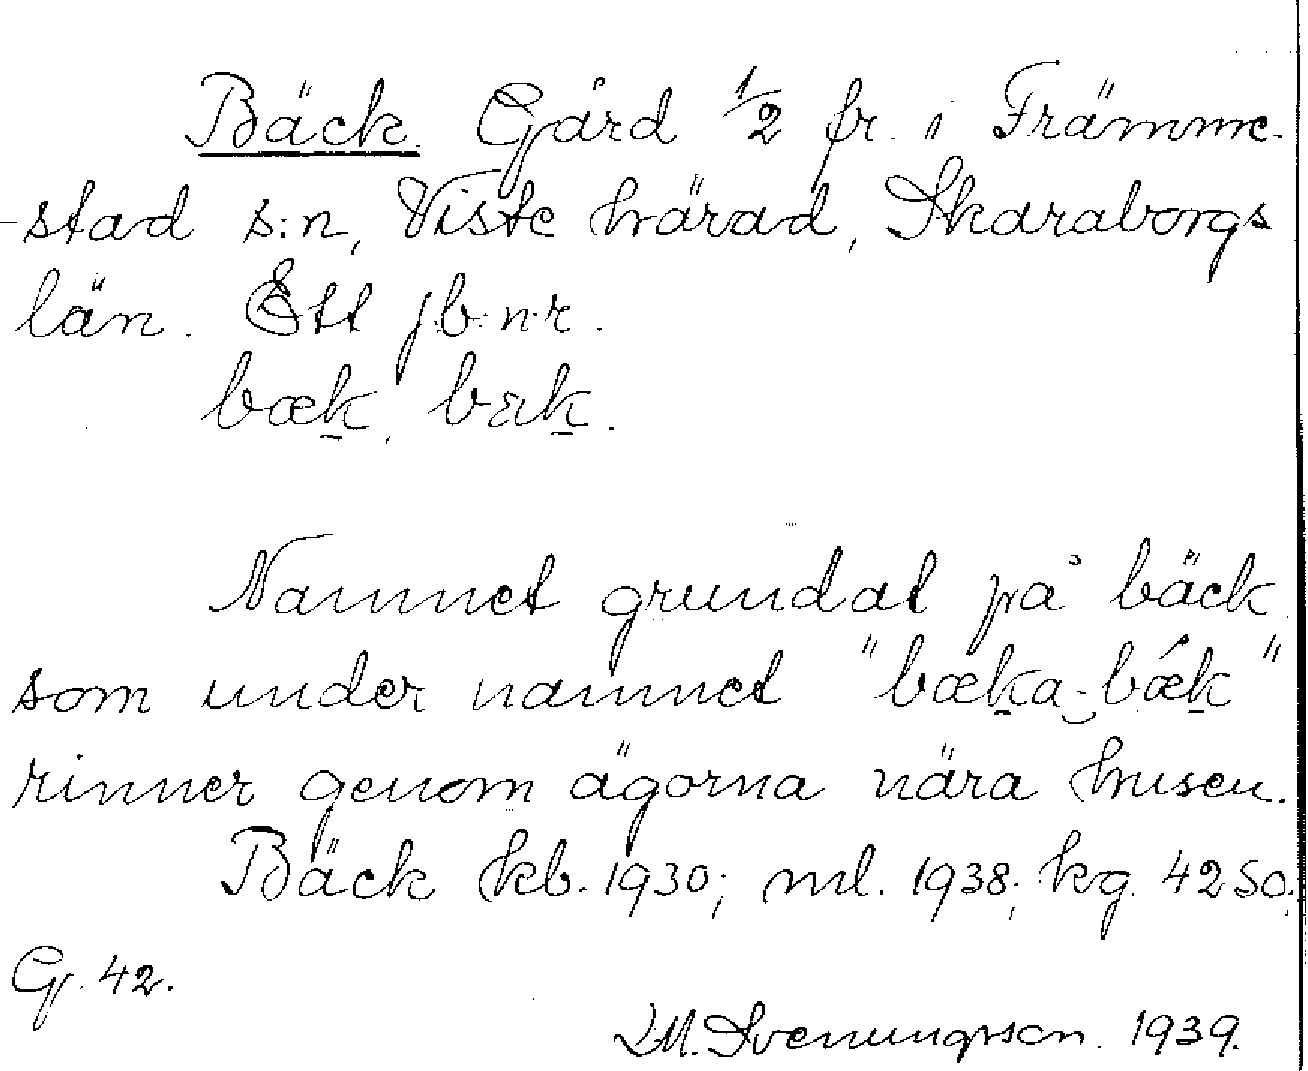 Bäck. Gård 1/2 fr. i Främme-
stad s:n, Viste härad, Skaraborgs
län. Ett jb:n:r.
bæk, bäk.
Namnet grundat på bäck
som under namnet "bæka-bǽk"
rinner genom ägorna nära husen.
Bäck kb. 1930; ml. 1938; kg. 4250;
G. 42.
M. Svenungsson. 1939.